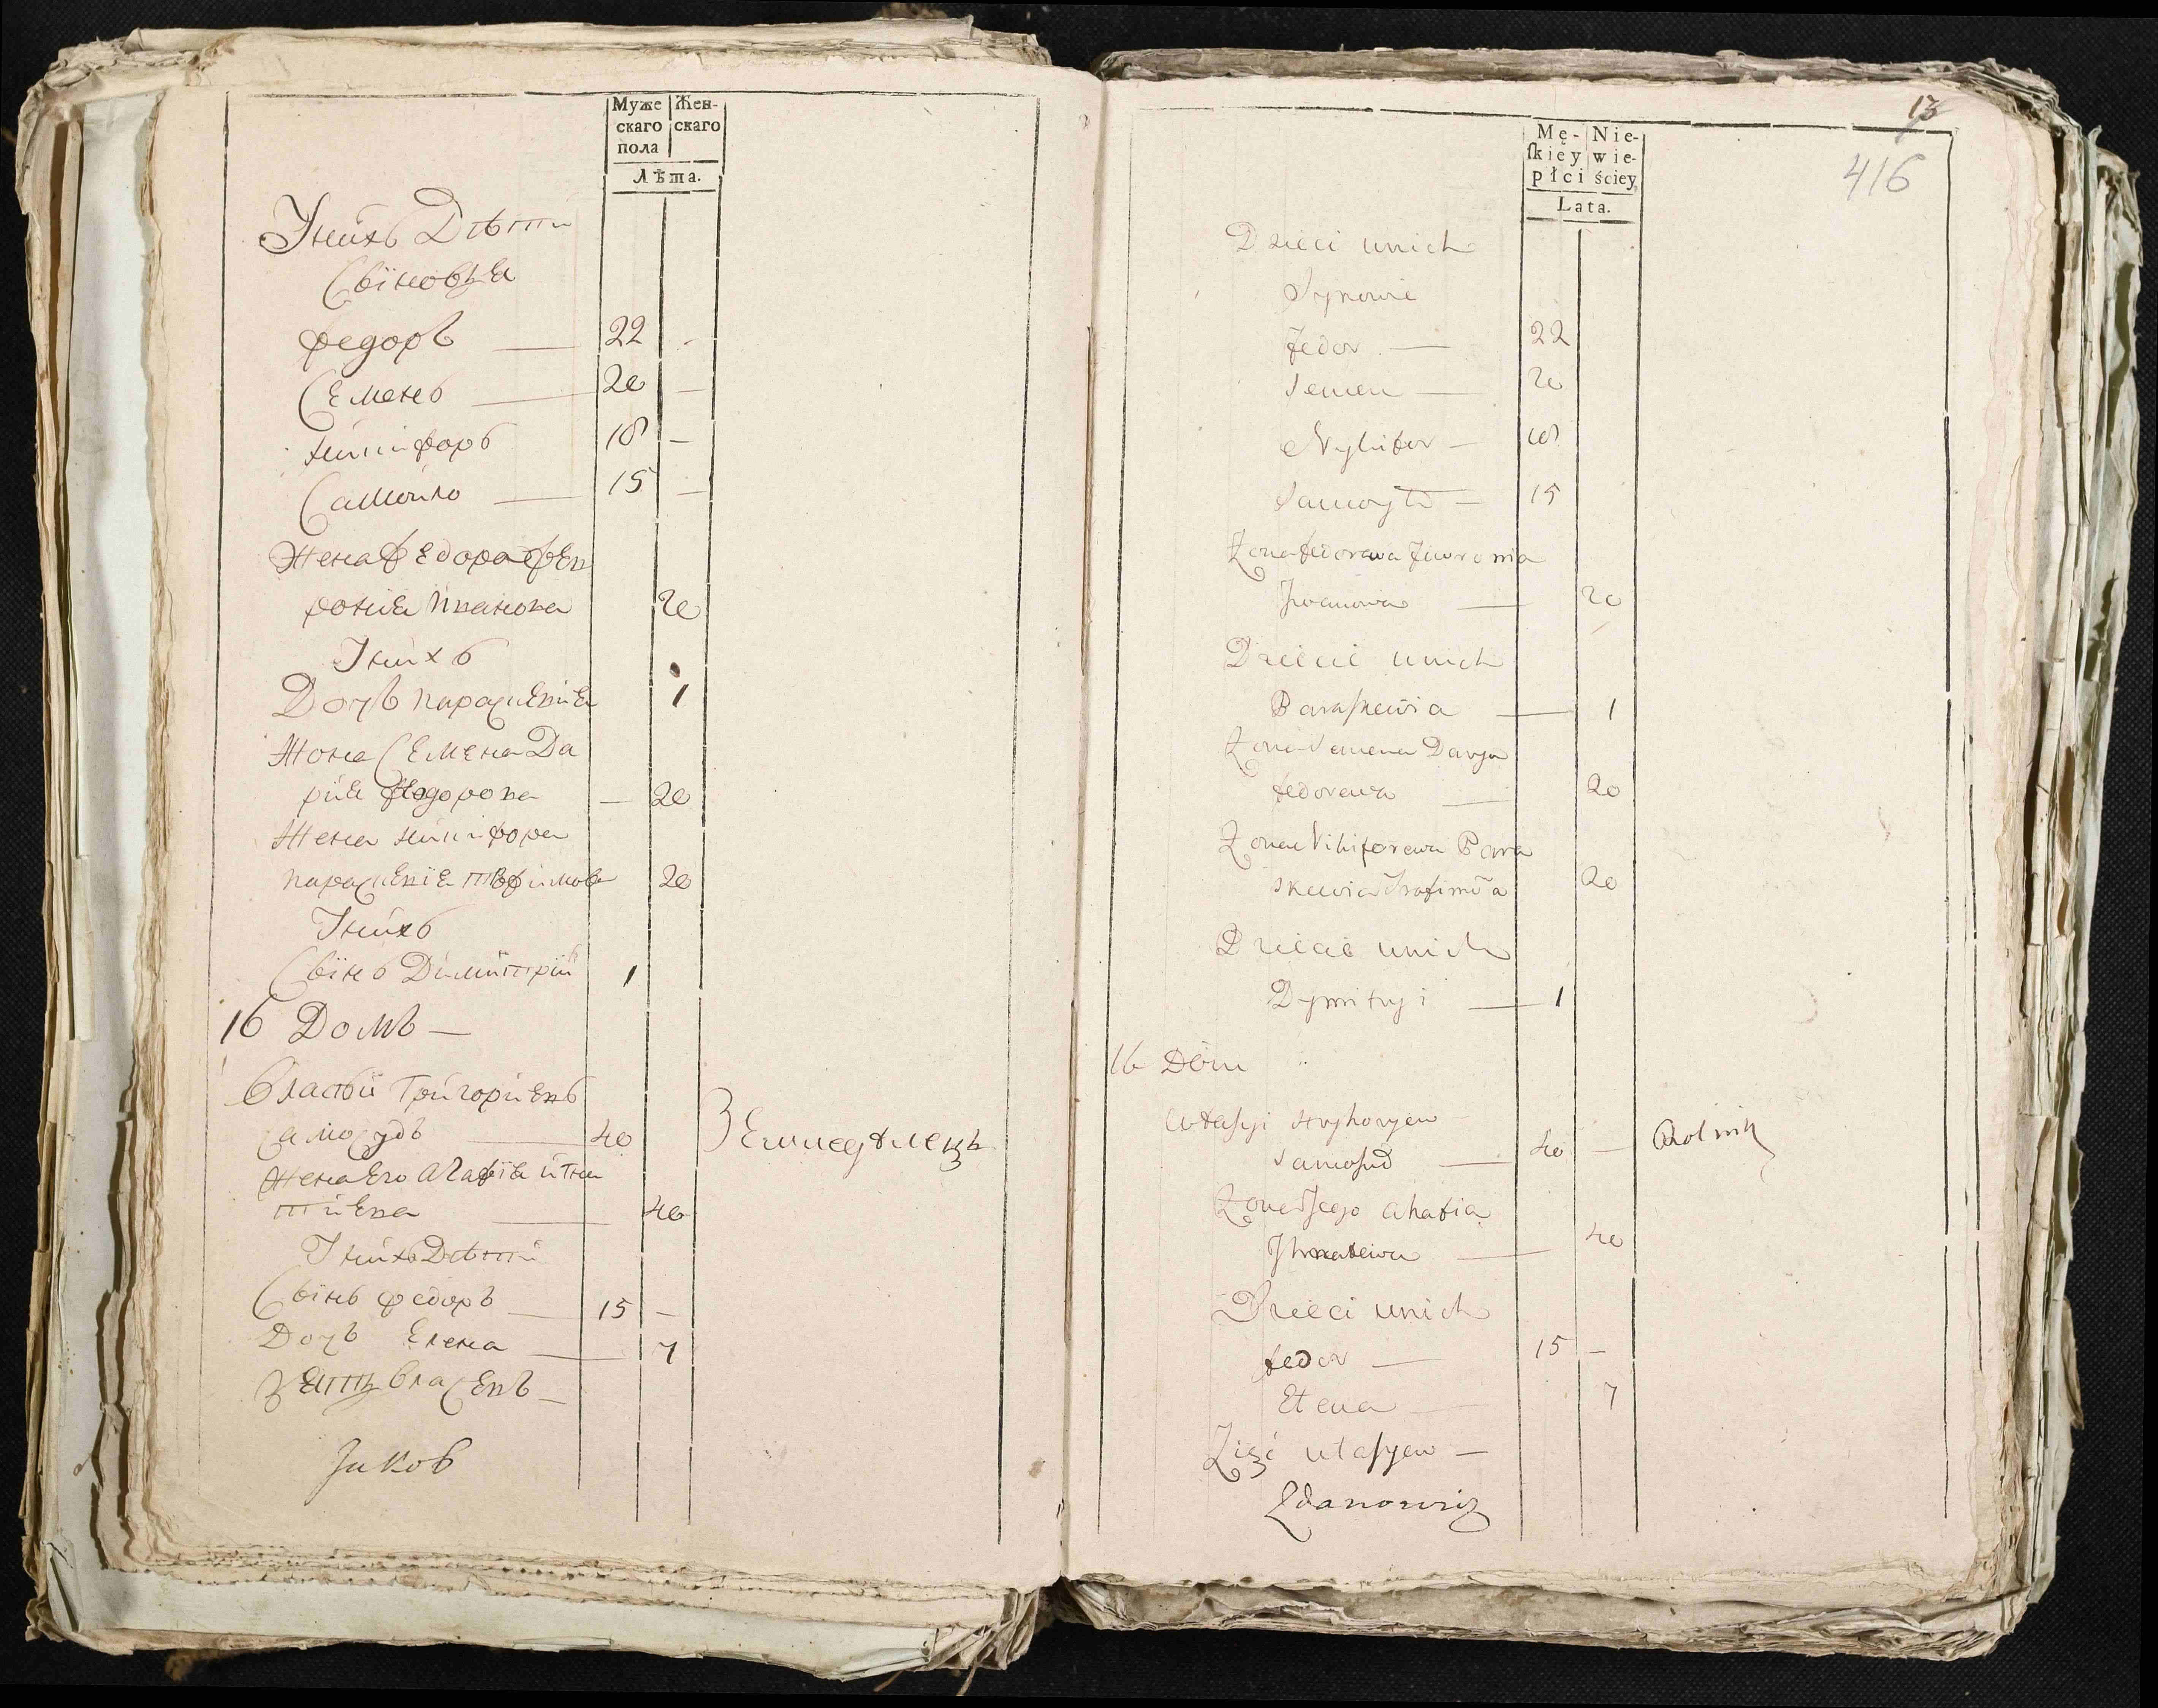 Муже Жен-
скаго скаго
пола
Лѣта.
Унихъ Дѣти
Сыновья
Федоръ — 22 -
Семенъ — 20 —
Никифоръ 18 —
Самойло — 15 —
Жена Федора Фев
рония Иванова 20
Унихъ
Дочь параскевия 1
Жона Семена Да
рия Федорова — 20
Жена никифора
параскевiя трофимова 20
Унихъ
Сынъ Димитрий 1
16 Домъ —
Власий Григориевъ
самосудъ — 40 Земледѣлецъ
Жена Его Агафiя игна
тиева — 40
Унихъ Дѣти
Сынъ Федоръ — 15 —
Дочь Елена — 7
Зять власевъ —
Яковъ
13
416
Mę- Nie-
ſkiey wie-
płci ściey
Lata.
Dzieci unich
Synowie
Fedor — 22
Semen — 20
Nykifor — 18
Samoyło — 15
Zona Fedorowa Fewronia
Iwanowa — 20
Dziecie unich
Paraſkewia — 1
Zona Semena Darya
Fedorowa — 20
Zona Nikiforowa Para
skewia Trofimowa 20
Dziecie unich
Dymitryi — 1
16 Dom
Własyi Hryhoryew
Samosud — 40 — Rolnik
Zona Jego Ahafia
Ihnatiewa — 40
Dzieci unich
Fedor — 15 —
Elena — 7
Zięć Własyew —
Zdanowicz